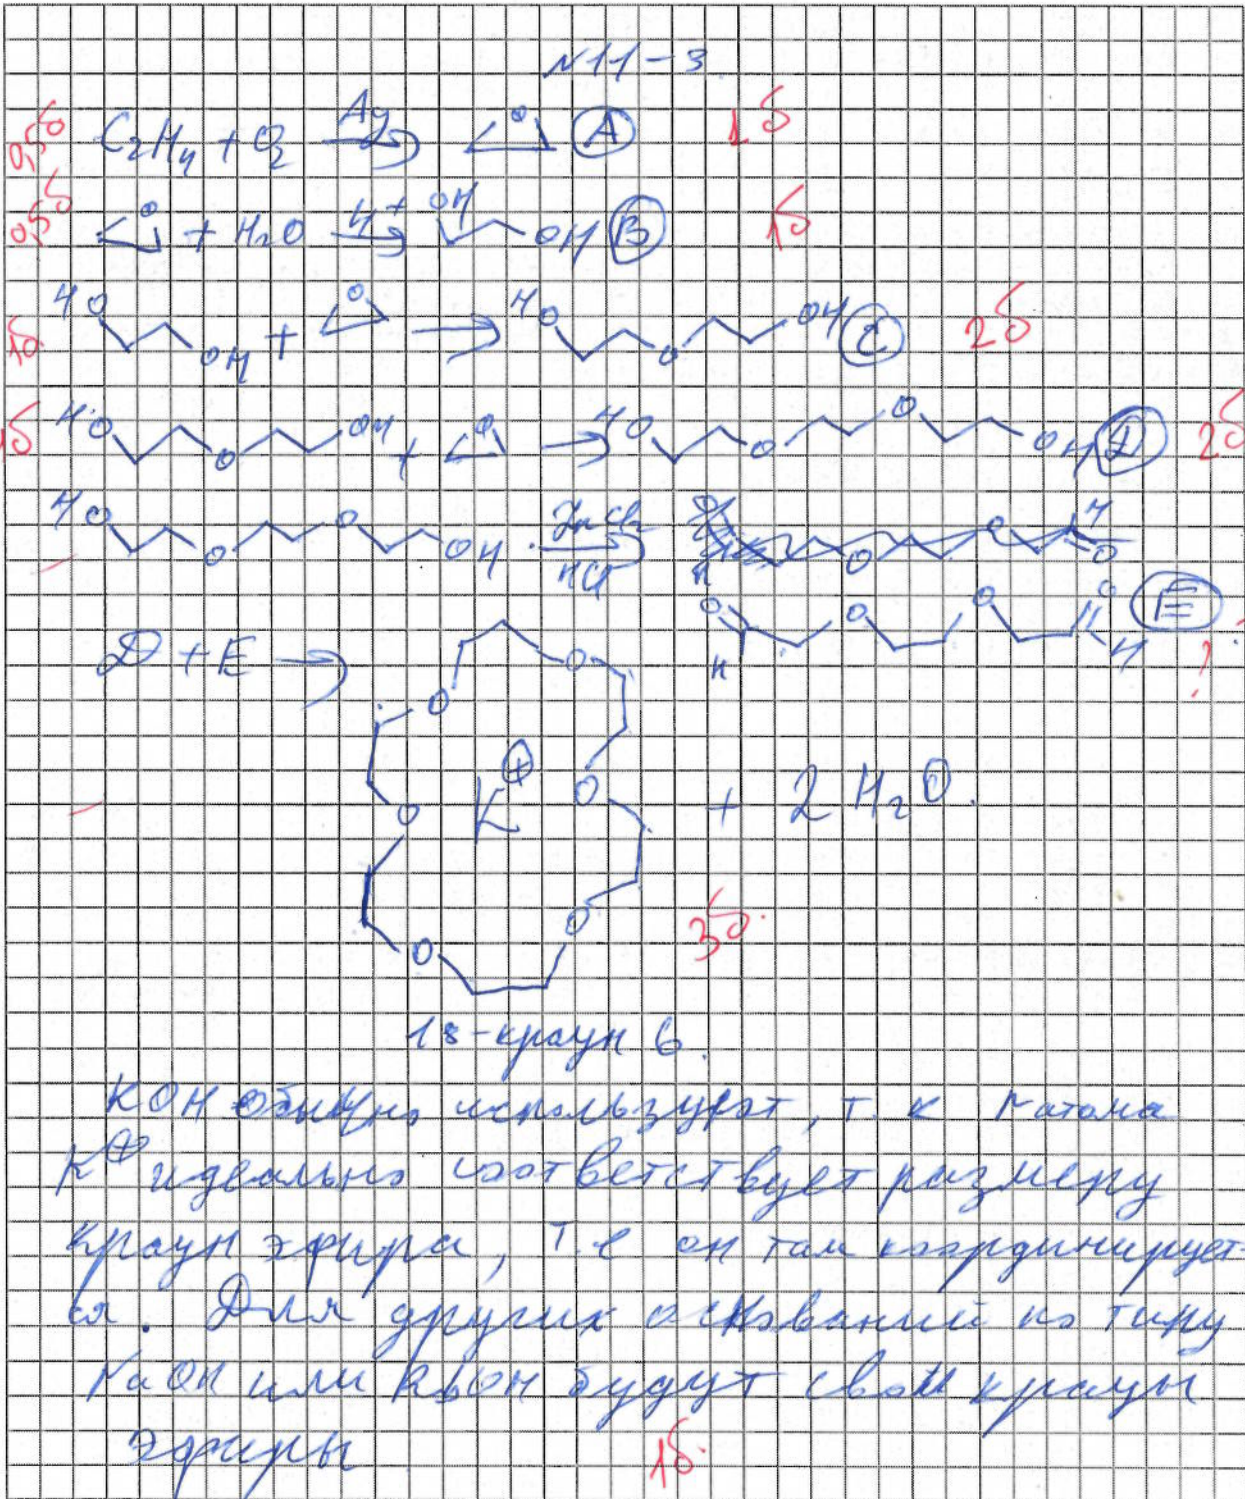 №11-3
0,5б C₂H₄ + O₂ Ag → O A 1б
0,5б O + H₂O H⁺ → OH OH B 1б
1б HO OH + O → HO O OH C 2б
1б HO O OH + O → HO O O OH D 2б
– HO O O OH ZnCl₂ HCl → O O O O H H E ?
D + E → O O O O O O K⊕ + 2 H₂O. 3б.
18-краун 6.
KOH обычно используют, т. к r атома
K⊕ идеально соответствует размеру
краун эфира, т.е он там координирует-
ся. Для других оснований по типу
NaOH или RbOH будут свои крауы
эфиры 1б.